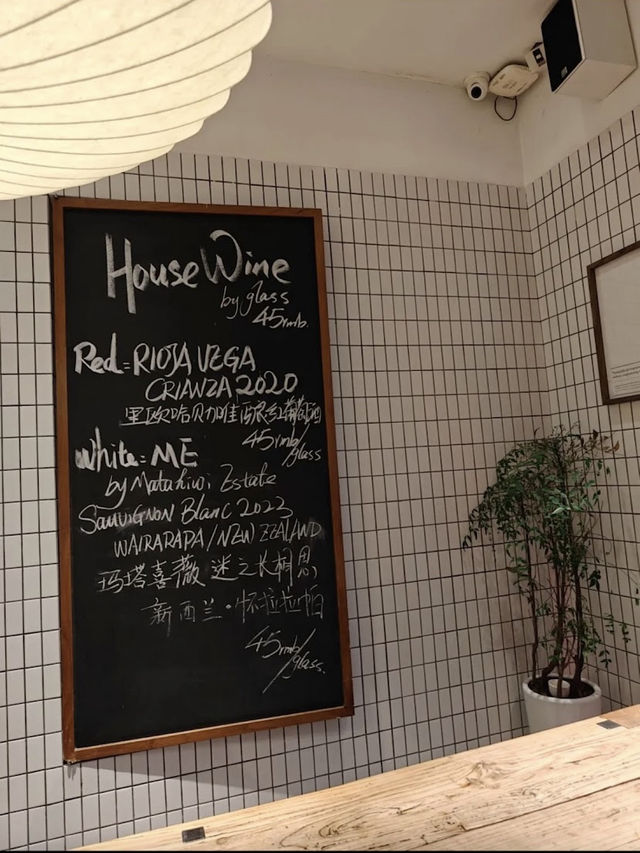 House Wine
by glass
45rmb.
Red: RIOJA VEGA
CRIANZA 2020
里欧哈贝加佳酿红葡萄酒
45rmb/glass
White: ME
by Matahiwi Estate
Sauvignon Blanc 2023
WAIRARAPA/NEW ZEALAND
玛塔喜薇 迷之长相思
新西兰·怀拉拉帕
45rmb/glass.